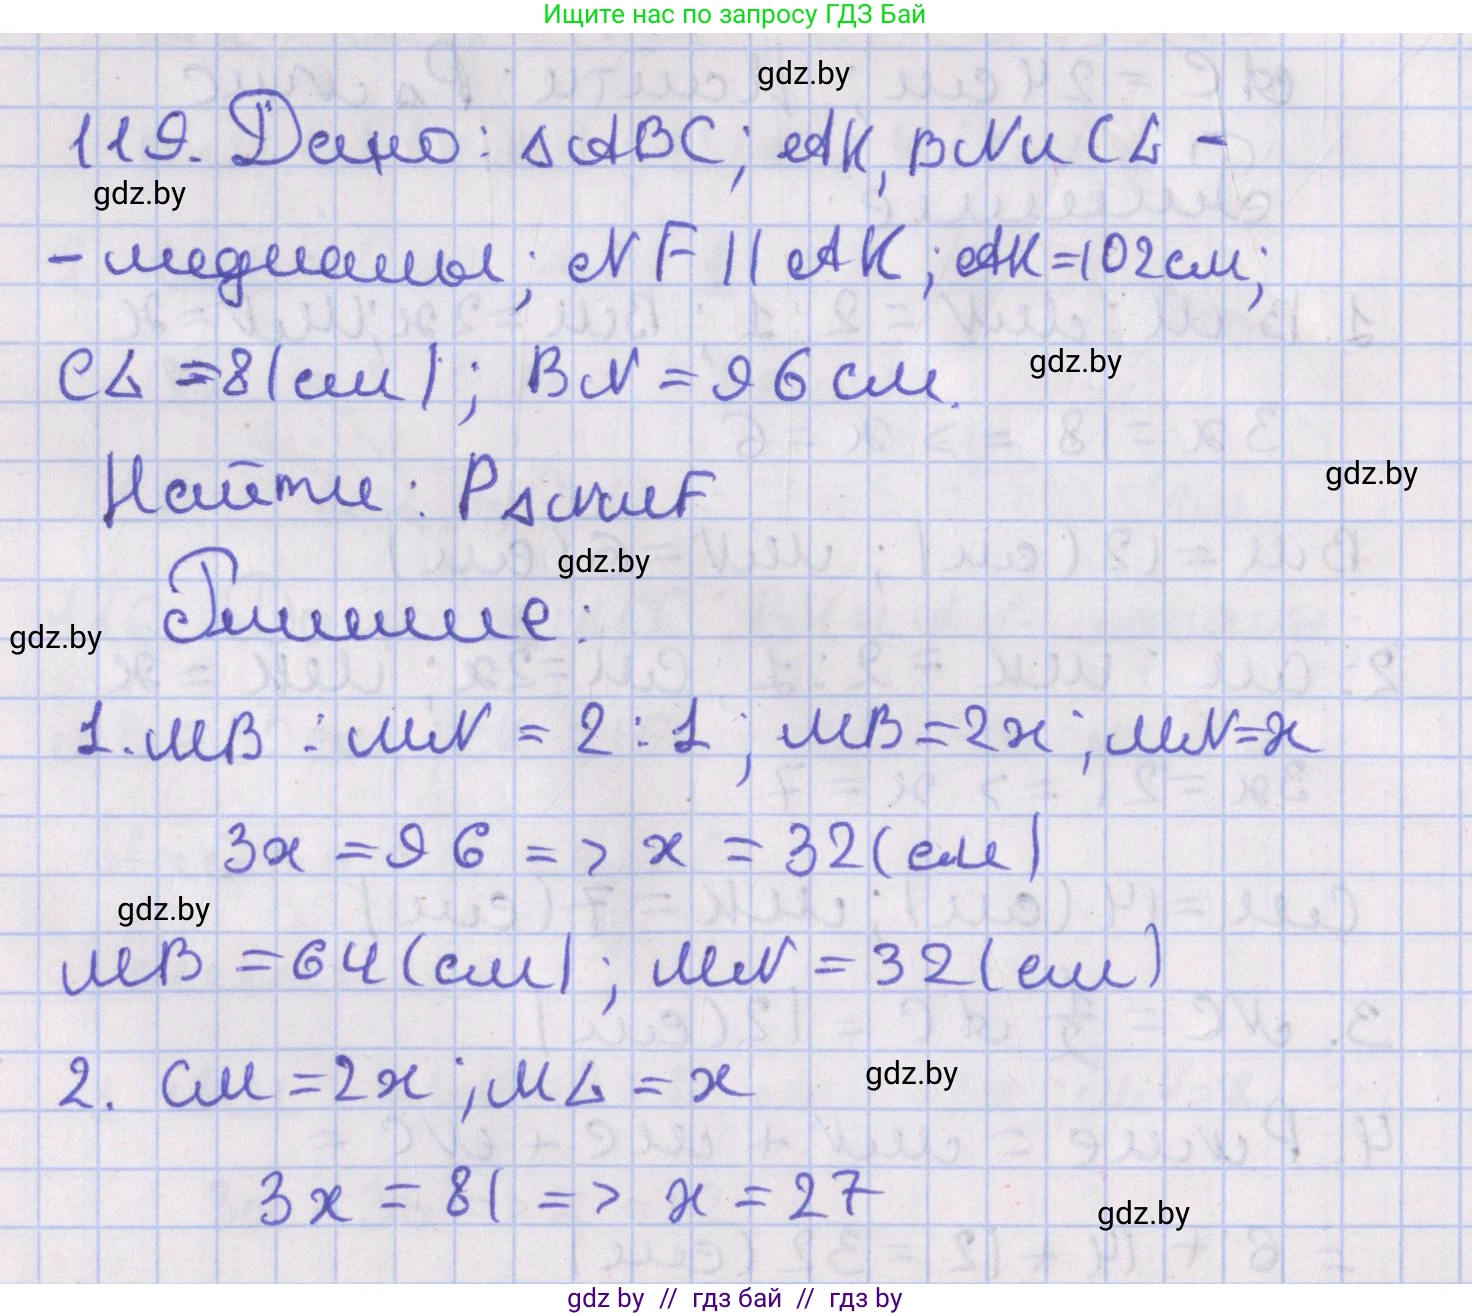 Ищите нас по запросу ГДЗ Бай
gdz.by
119. Дано: △ABC; AK, BN и CL -
gdz.by
- медианы; NF || AK; AK=102см;
CL = 81(см); BN = 96 см.
gdz.by
Найти: P△NMF
gdz.by
gdz.by
Решение:
gdz.by
1. MB : MN = 2:1; MB=2x; MN=x
3x = 96 => x = 32(см)
gdz.by
MB = 64(см); MN = 32(см)
2. CM = 2x; ML = x
gdz.by
3x = 81 => x = 27
gdz.by
gdz by // гдз бай // гдз by